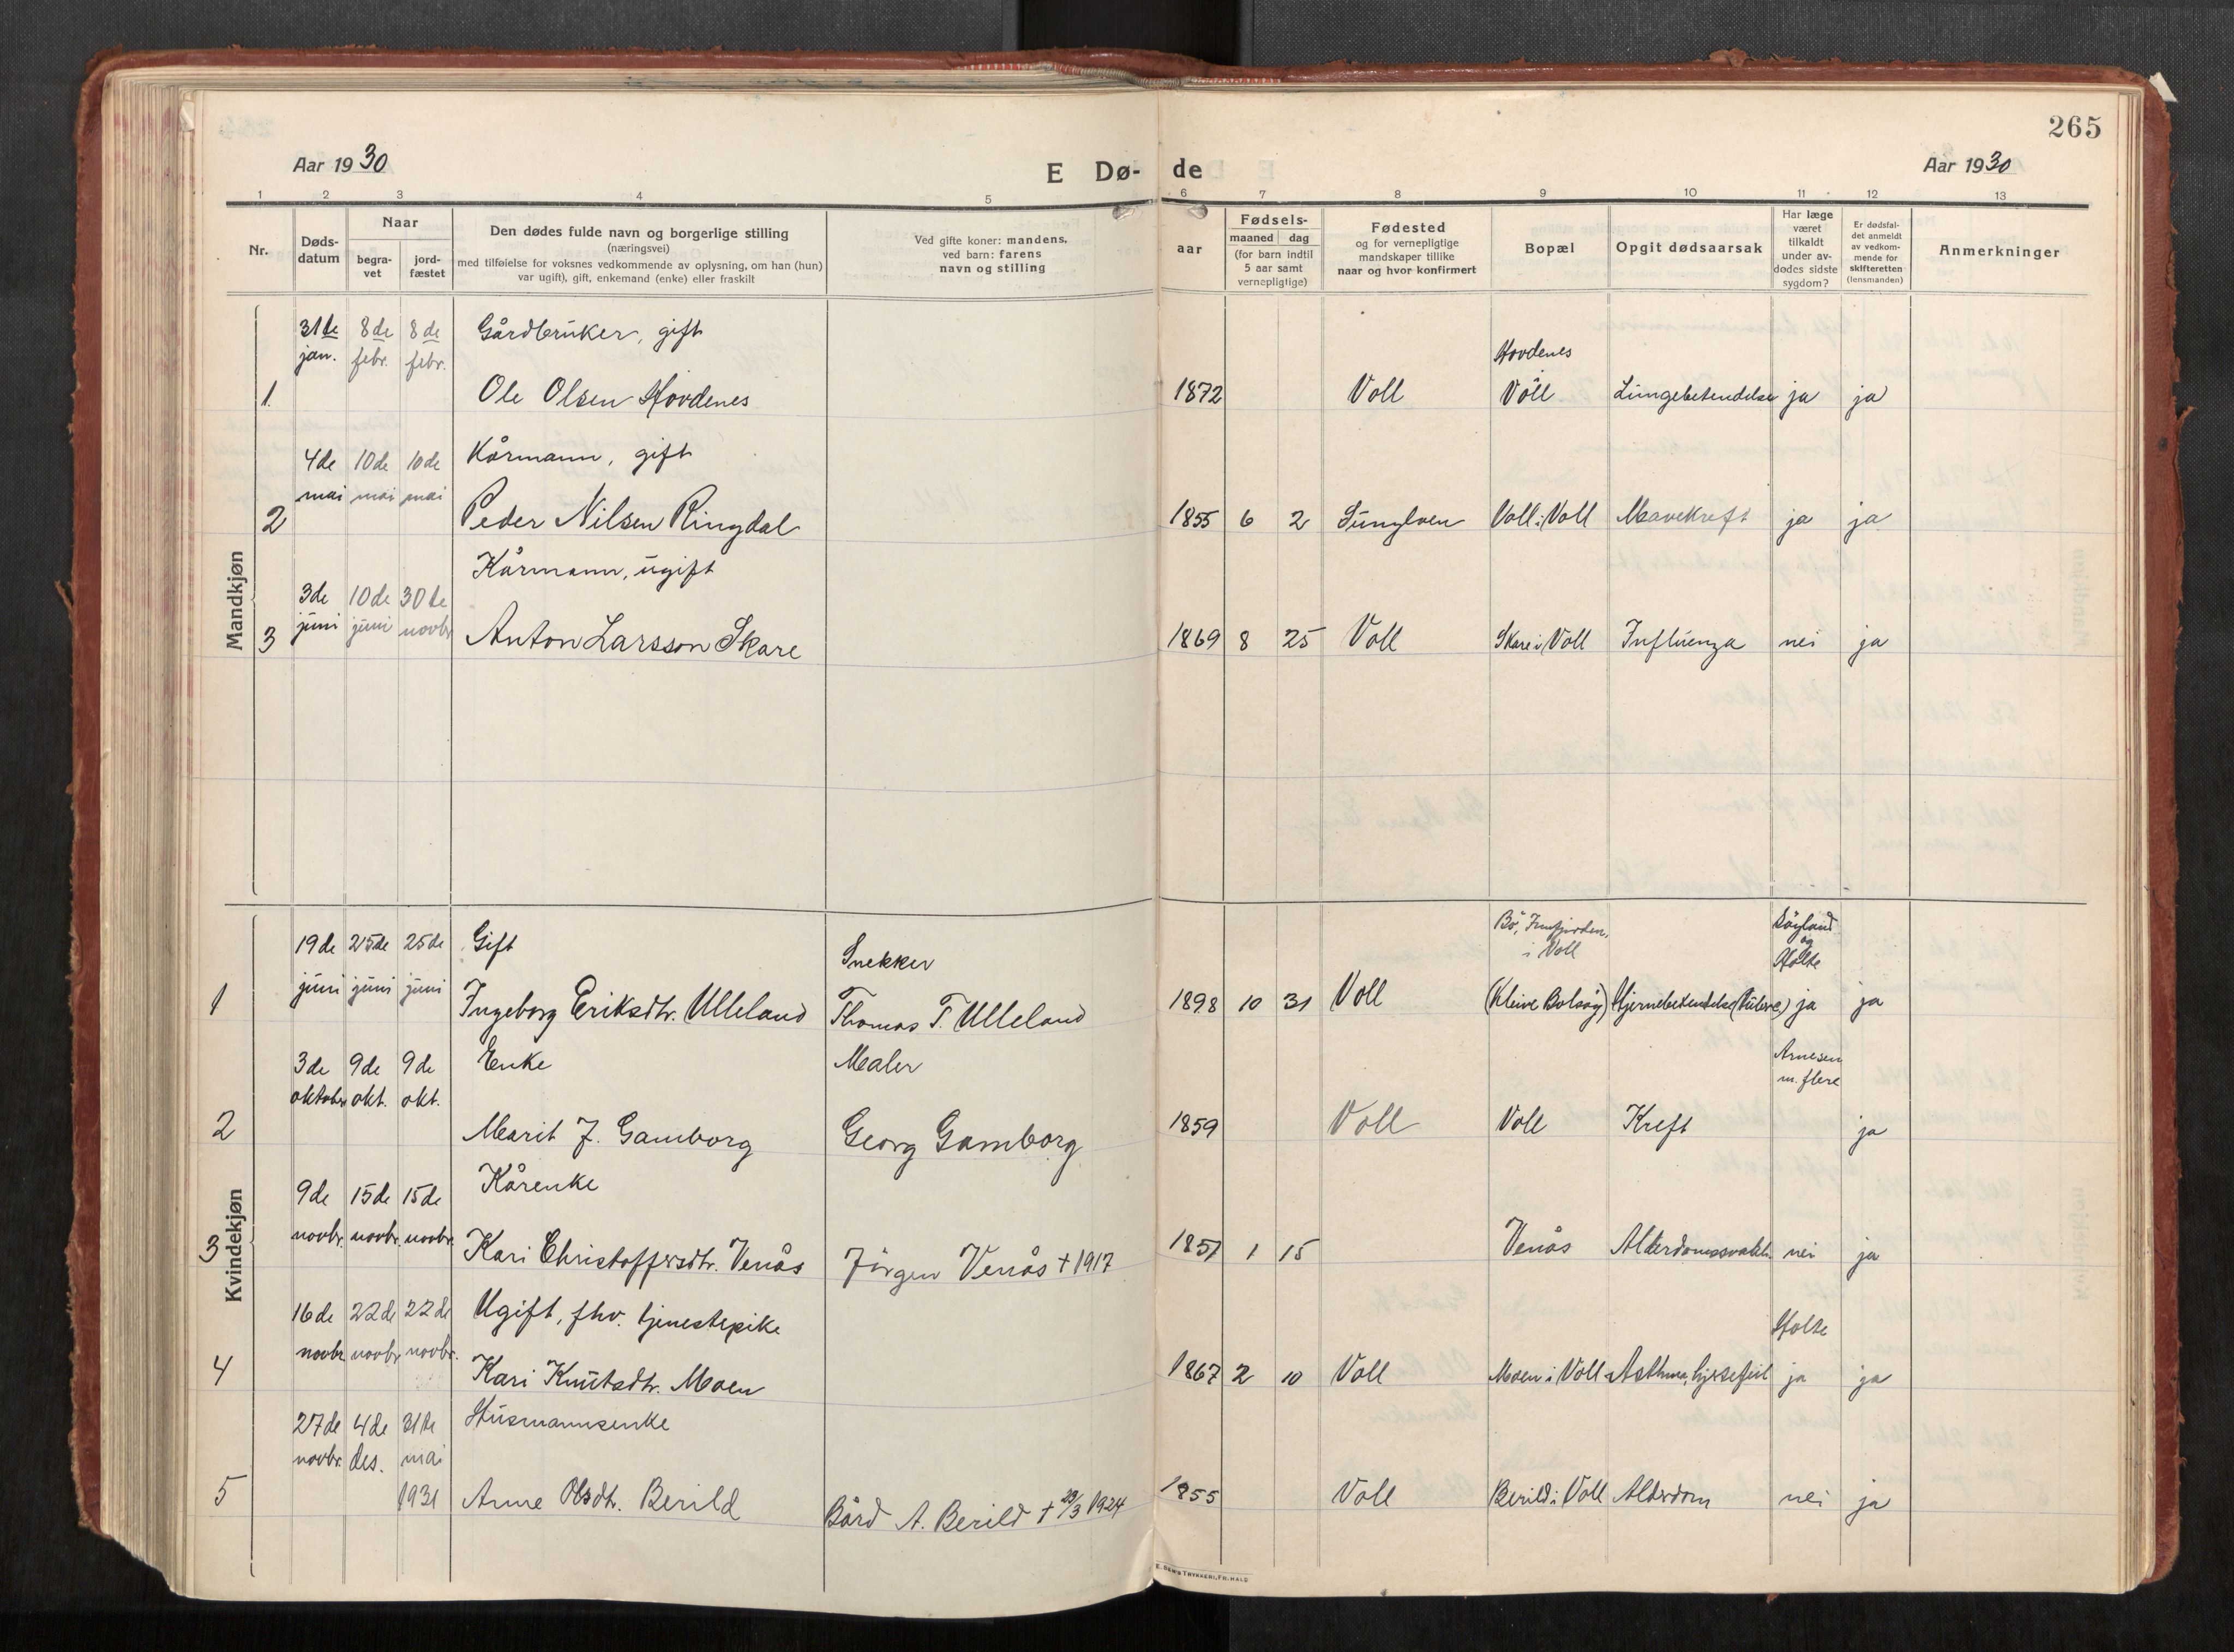 265
Aar 1930
E Dø-
de
Aar 1930
1 2 3 4 5 6 7 8 9 10 11 12 13
Nr.
Døds-
datum
Naar
begra-
vet
jord-
fæstet
Den dødes fulde navn og borgerlige stilling
(næringsvei)
med tilføielse for voksnes vedkommende av oplysning, om han (hun)
var ugift), gift, enkemand (enke) eller fraskilt
Ved gifte koner: mandens,
ved barn: farens
navn og stilling
aar
Fødsels-
maaned dag
(for barn indtil
5 aar samt
vernepligtige)
Fødested
og for vernepligtige
mandskaper tillike
naar og hvor konfirmert
Bopæl
Opgit dødsaarsak
Har læge
været
tilkaldt
under av-
dødes sidste
sygdom?
Er dødsfal-
det anmeldt
av vedkom-
mende for
skifteretten
(lensmanden)
Anmerkninger
Mandkjøn
31te 8de 8de Gårdbruker, gift
jan. febr. febr. Hovdenes
1. Ole Olsen Hovdenes 1872 Voll Voll Lungebetendelse ja ja
4de 10de 10de Kårmann, gift
mai mai mai
2 Peder Nilsen Ringdal 1855 6 2 Sunylven Voll i Voll Mavekreft ja ja
Kårmann, ugift
3de 10de 30te
juni juni novbr
3 Anton Larsson Skare 1869 8 25 Voll Skare i Voll Influenza nei ja
Kvindekjøn
19de 25de 25de Gift Snekker Bö,
i Voll
og
Holte
juni juni juni
1 Ingeborg Eriksdtr. Ulleland Thomas T. Ulleland 1898 10 31 Voll (Kleive Bolsöy) Hjernebetendelse ja ja
3de 9de 9de Enke Maler Arnesen
m. flere
oktober okt. okt.
2 Marit J. Gamborg Georg Gamborg 1859 Voll Voll Kreft ja
9de 15de 15de Kårenke
novbr. novbr. novbr.
3 Kari Christoffersdtr. Venås Jörgen Venås + 1917 1851 1 15 Venås nei ja
16de 22de 22de Ugift, fhv. tjenestepike Holte
novbr novbr novbr.
4 Kari Knutsdtr. Moen 1867 2 10 Voll Moen i Voll Asthma, hjertefeil ja ja
27de 4de 31te Husmannsenke
novbr. des. mai
5 1931 Anne Olsdtr. Berild Bård A. Berild + 23/3 1924 1855 Voll Berild i Voll Alderdom nei ja